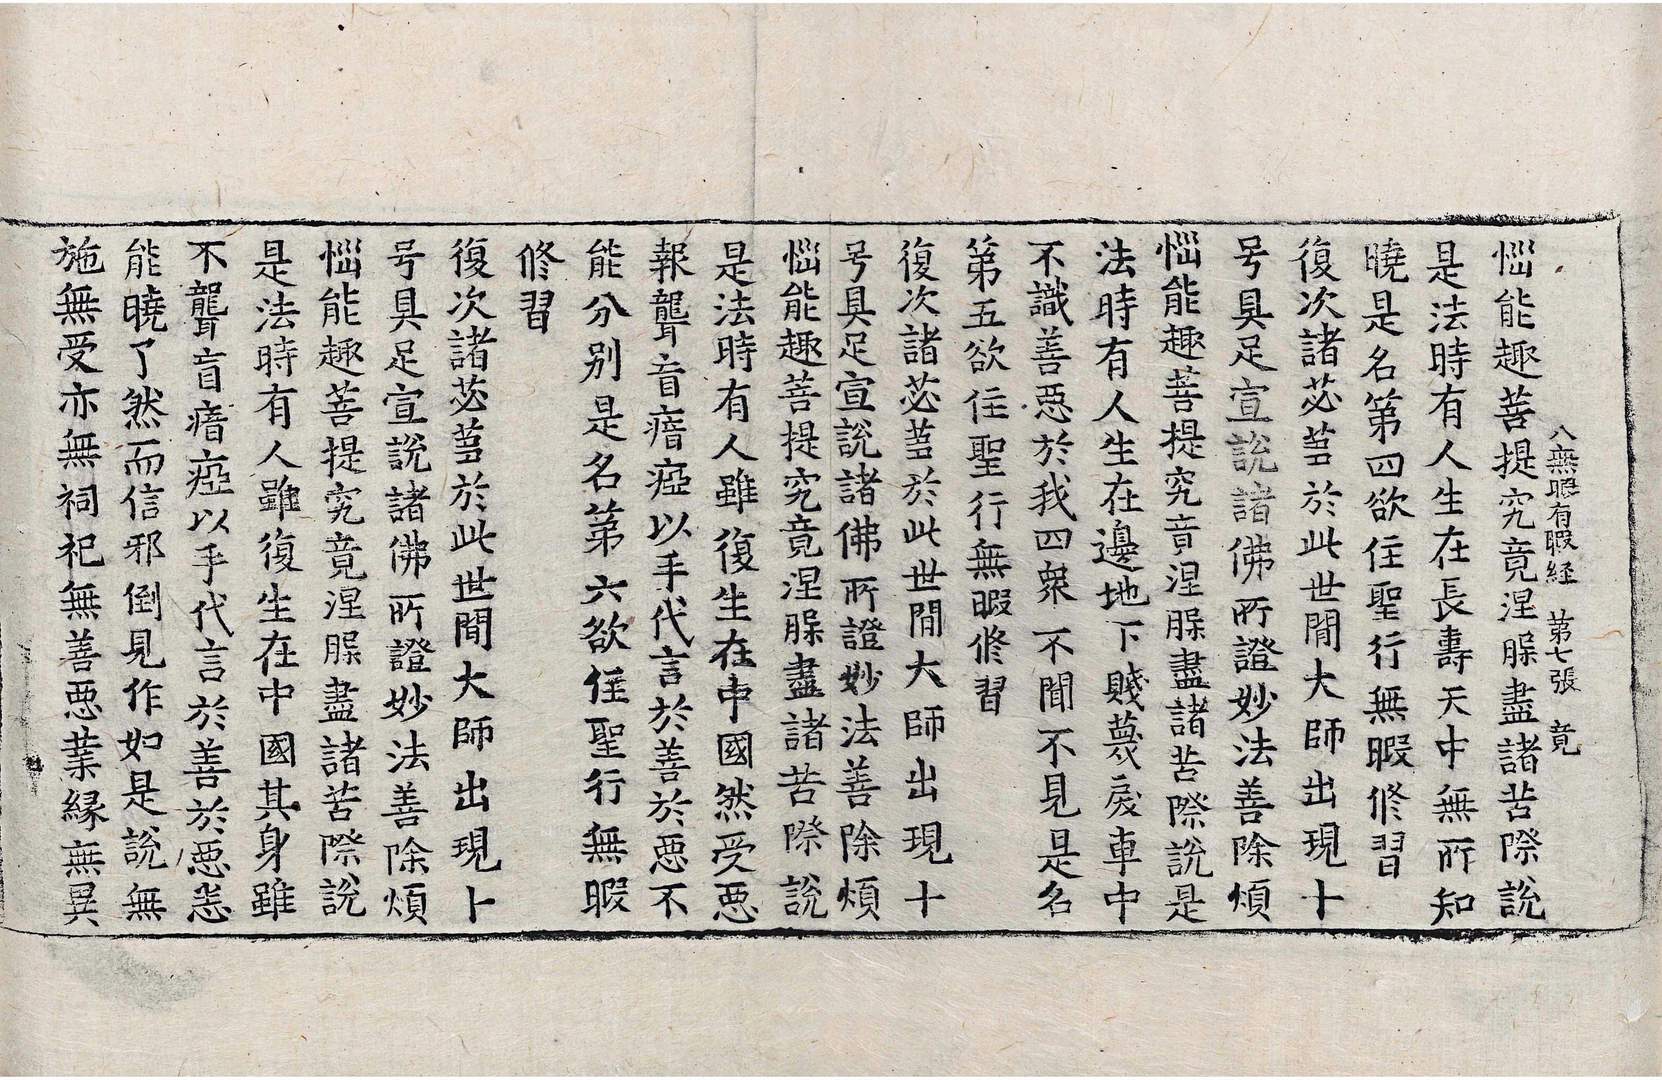 八無暇有暇経　第七張　竟
惱能趣菩提究竟涅槃盡諸苦際說
是法時有人生在長壽天中無所知
曉是名第四欲住聖行無暇修習
復次諸苾芻於此世間大師出現十
号具足宣說諸佛所證妙法善除煩
惱能趣菩提究竟涅槃盡諸苦際說是
法時有人生在邊地下賤蔑戾車中
不識善惡於我四衆不聞不見是名
第五欲住聖行無暇修習
復次諸苾芻於此世間大師出現十
号具足宣說諸佛所證妙法善除煩
惱能趣菩提究竟涅槃盡諸苦際說
是法時有人雖復生在中國然受惡
報聾盲瘖瘂以手代言於善於惡不
能分別是名第六欲住聖行無暇
修習
復次諸苾芻於此世間大師出現十
号具足宣說諸佛所證妙法善除煩
惱能趣菩提究竟涅槃盡諸苦際說
是法時有人雖復生在中國其身雖
不聾盲瘖瘂以手代言於善於惡悉
能曉了然而信邪倒見作如是說無
施無受亦無祠祀無善惡業緣無異